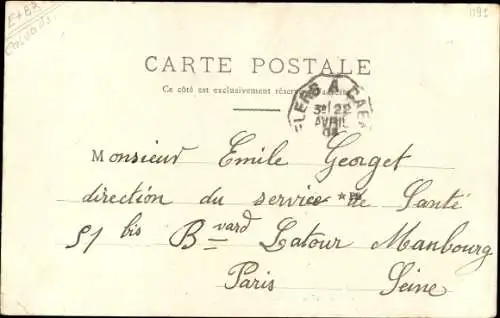 E+83
Calvados
1191
CARTE POSTALE
Ce côté est exclusivement réservé à l'adresse
FLERS A CAEN
3e 22
AVRIL
04
Monsieur Emile Georget
direction du service de Santé
51 bis Bvard Latour Manbourg
Paris Seine